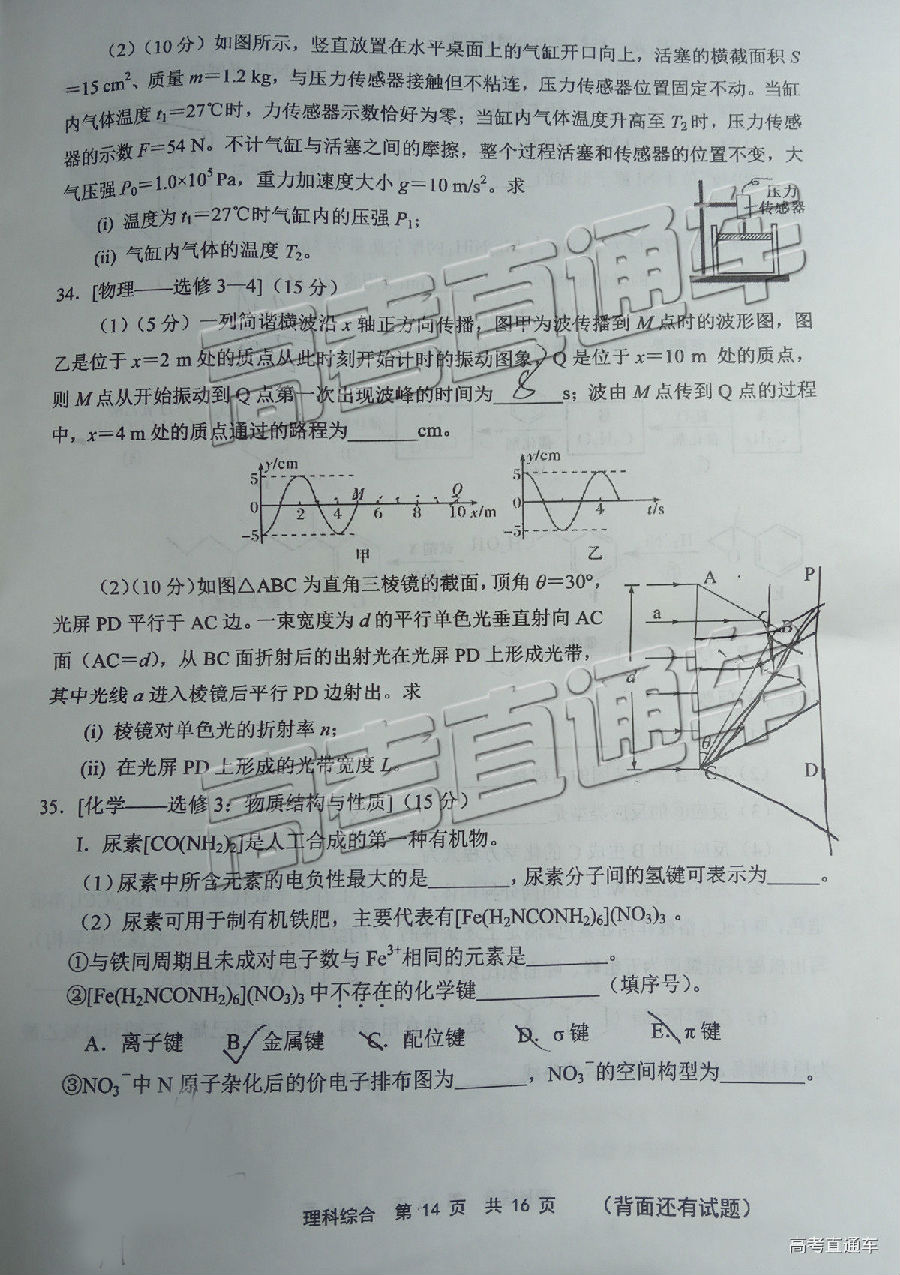 (2)(10分)如图所示，竖直放置在水平桌面上的气缸开口向上，活塞的横截面积 S
=15 cm²、质量 m=1.2 kg，与压力传感器接触但不粘连，压力传感器位置固定不动。当缸
内气体温度 t₁=27℃时，力传感器示数恰好为零；当缸内气体温度升高至 T₂ 时，压力传感
器的示数 F=54 N。不计气缸与活塞之间的摩擦，整个过程活塞和传感器的位置不变，大
气压强 P₀=1.0×10⁵ Pa，重力加速度大小 g=10 m/s²。求
(i) 温度为 t₁=27℃时气缸内的压强 P₁；
(ii) 气缸内气体的温度 T₂。
压力
传感器
34. [物理——选修 3—4]（15 分）
(1)(5 分）一列简谐横波沿 x 轴正方向传播，图甲为波传播到 M 点时的波形图，图
乙是位于 x=2 m 处的质点从此时刻开始计时的振动图象，Q 是位于 x=10 m 处的质点，
则 M 点从开始振动到 Q 点第一次出现波峰的时间为 8 s；波由 M 点传到 Q 点的过程
中，x=4 m 处的质点通过的路程为______cm。
y/cm
5
0
-5
2 4 6 8 10 x/m
M
Q
甲
y/cm
5
0
-5
4
t/s
乙
(2)(10 分)如图△ABC 为直角三棱镜的截面，顶角 θ=30°，
光屏 PD 平行于 AC 边。一束宽度为 d 的平行单色光垂直射向 AC
面（AC=d），从 BC 面折射后的出射光在光屏 PD 上形成光带，
其中光线 a 进入棱镜后平行 PD 边射出。求
(i) 棱镜对单色光的折射率 n；
(ii) 在光屏 PD 上形成的光带宽度 L。
A
P
a
B
d
θ
C
D
35. [化学——选修 3：物质结构与性质]（15 分）
I. 尿素[CO(NH₂)₂]是人工合成的第一种有机物。
（1）尿素中所含元素的电负性最大的是______，尿素分子间的氢键可表示为______。
（2）尿素可用于制有机铁肥，主要代表有[Fe(H₂NCONH₂)₆](NO₃)₃ 。
①与铁同周期且未成对电子数与 Fe³⁺相同的元素是______。
②[Fe(H₂NCONH₂)₆](NO₃)₃ 中不存在的化学键______（填序号）。
A．离子键 B．金属键 C．配位键 D．σ键 E．π键
③NO₃⁻中 N 原子杂化后的价电子排布图为______，NO₃⁻的空间构型为______。
理科综合 第 14 页 共 16 页 （背面还有试题）
高考直通车
高考直通车
高考直通车